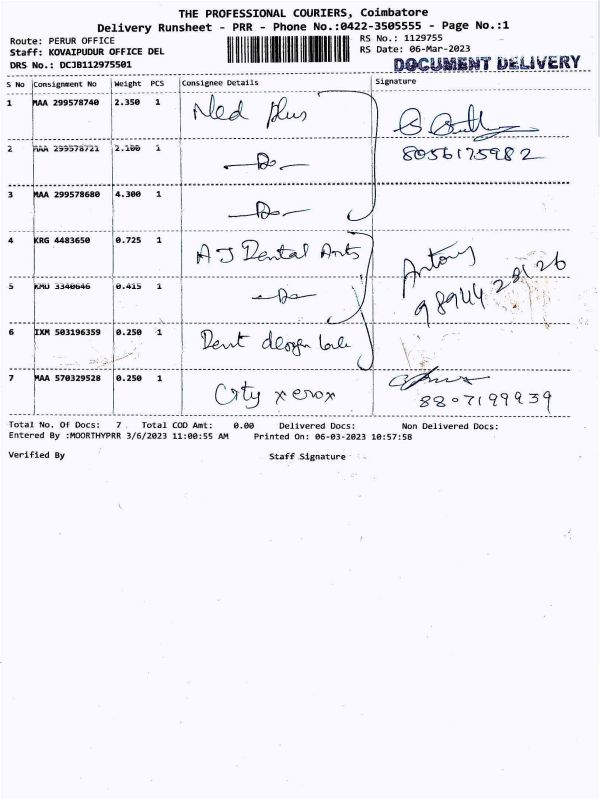 THE PROFESSIONAL COURIERS, Coimbatore
Delivery Runsheet - PRR - Phone No.:0422-3505555 - Page No.:1
Route: PERUR OFFICE
RS No.: 1129755
Staff: KOVAIPUDUR OFFICE DEL
RS Date: 06-Mar-2023
DRS No.: DCJB112975501
DOCUMENT DELIVERY
S No Consignment No Weight PCS Consignee Details Signature
1 MAA 299578740 2.350 1 Med plus
8056175982
2 MAA 299578721 2.100 1 -Do-
3 MAA 299578680 4.300 1 -Do-
4 KRG 4483650 0.725 1 AJ Dental Arts Antony
5 KMU 3340646 0.415 1 -Do- 98944 28126
6 IXM 503196359 0.250 1 Dent
7 MAA 570329528 0.250 1 City xerox
8807199939
Total No. Of Docs: 7 Total COD Amt: 0.00 Delivered Docs: Non Delivered Docs:
Entered By :MOORTHYPRR 3/6/2023 11:00:55 AM Printed On: 06-03-2023 10:57:58
Verified By Staff Signature